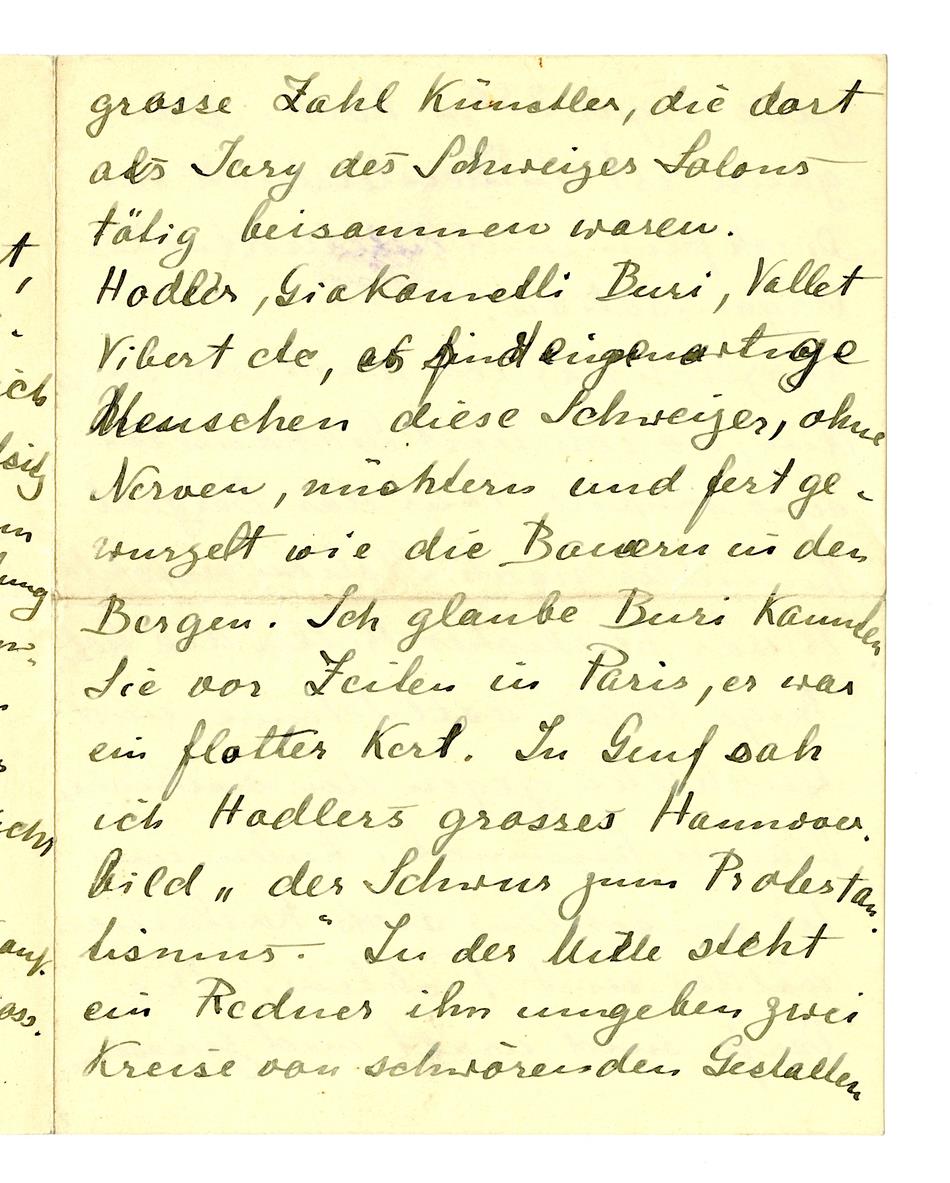 grosse Zahl Künstler, die dort
als Jury des Schweizer Salons
tätig beisammen waren.
Hodler, Giakometti Buri, Vallet
Vibert etc, es sind eigenartige
Menschen diese Schweizer, ohne
Nerven, nüchtern und fest ge-
wurzelt wie die Bauern in den
Bergen. Ich glaube Buri kannten
Sie vor Zeiten in Paris, er war
ein flotter Kerl. In Genf sah
ich Hodlers grosses Hannover.
bild „der Schwur zum Protestan.
tismus." In der Mitte steht
ein Redner ihn umgeben zwei
Kreise von schwörenden Gestalten
t,
ich
ung
auf.